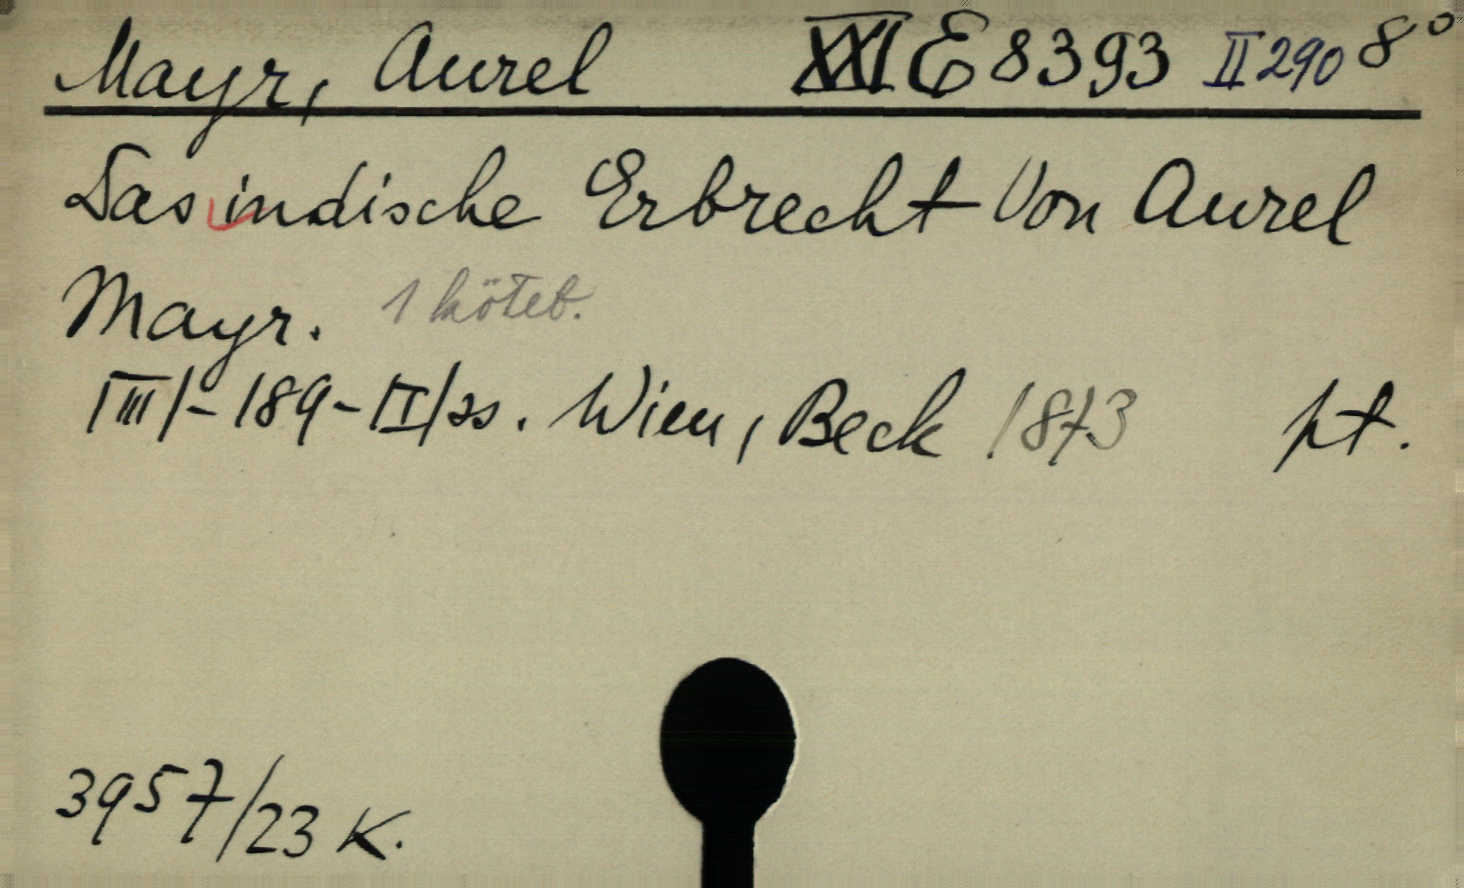 Mayr, Aurel XXI E 8393 II 290 8°
Das indische Erbrecht Von Aurel
Mayr. 1 kötet.
/III/-189-/I/ss. Wien, Beck 1873 pt.
3957/23 K.